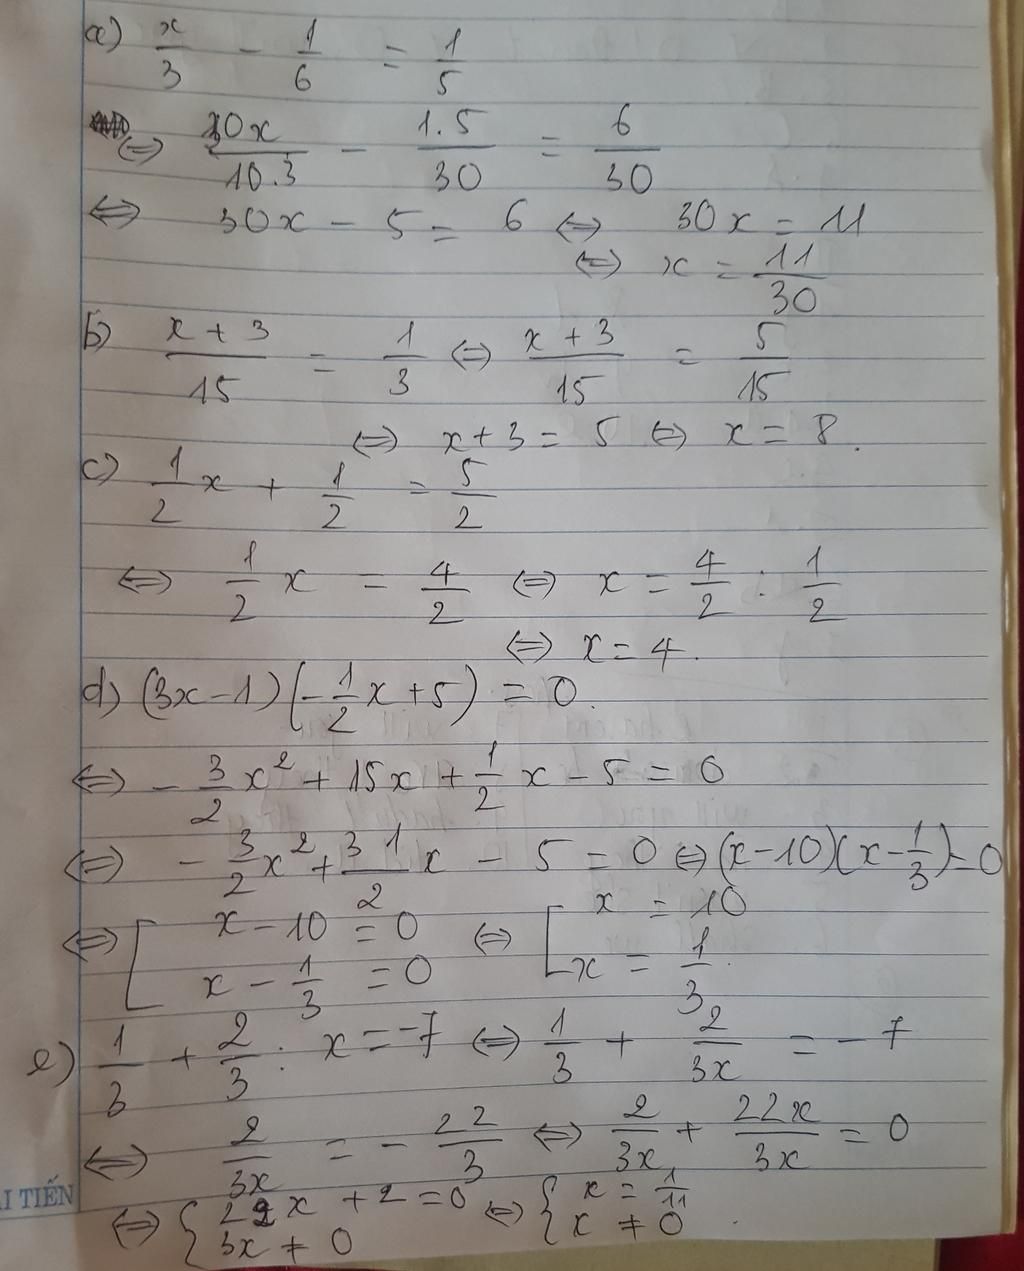 a) x/3 - 1/6 = 1/5
⇔ 10x/10.3 - 1.5/30 = 6/30
⇔ 30x - 5 = 6 ⇔ 30x = 11
⇔ x = 11/30
b) x + 3/15 = 1/3 ⇔ x + 3/15 = 5/15
⇔ x + 3 = 5 ⇔ x = 8.
c) 1/2 x + 1/2 = 5/2
⇔ 1/2 x = 4/2 ⇔ x = 4/2 : 1/2
⇔ x = 4.
d) (3x - 1)(-1/2 x + 5) = 0.
⇔ - 3/2 x² + 15x + 1/2 x - 5 = 0
⇔ - 3/2 x² + 31/2 x - 5 = 0 ⇔ (x - 10)(x - 1/3) = 0
⇔ [ x - 10 = 0 ⇔ [ x = 10
x - 1/3 = 0 x = 1/3
e) 1/3 + 2/3 : x = -7 ⇔ 1/3 + 2/3x = - 7
⇔ 2/3x = - 22/3 ⇔ 2/3x + 22x/3x = 0
⇔ { 22x + 2 = 0 ⇔ { x = 1/11
3x ≠ 0 x ≠ 0.
TIẾN